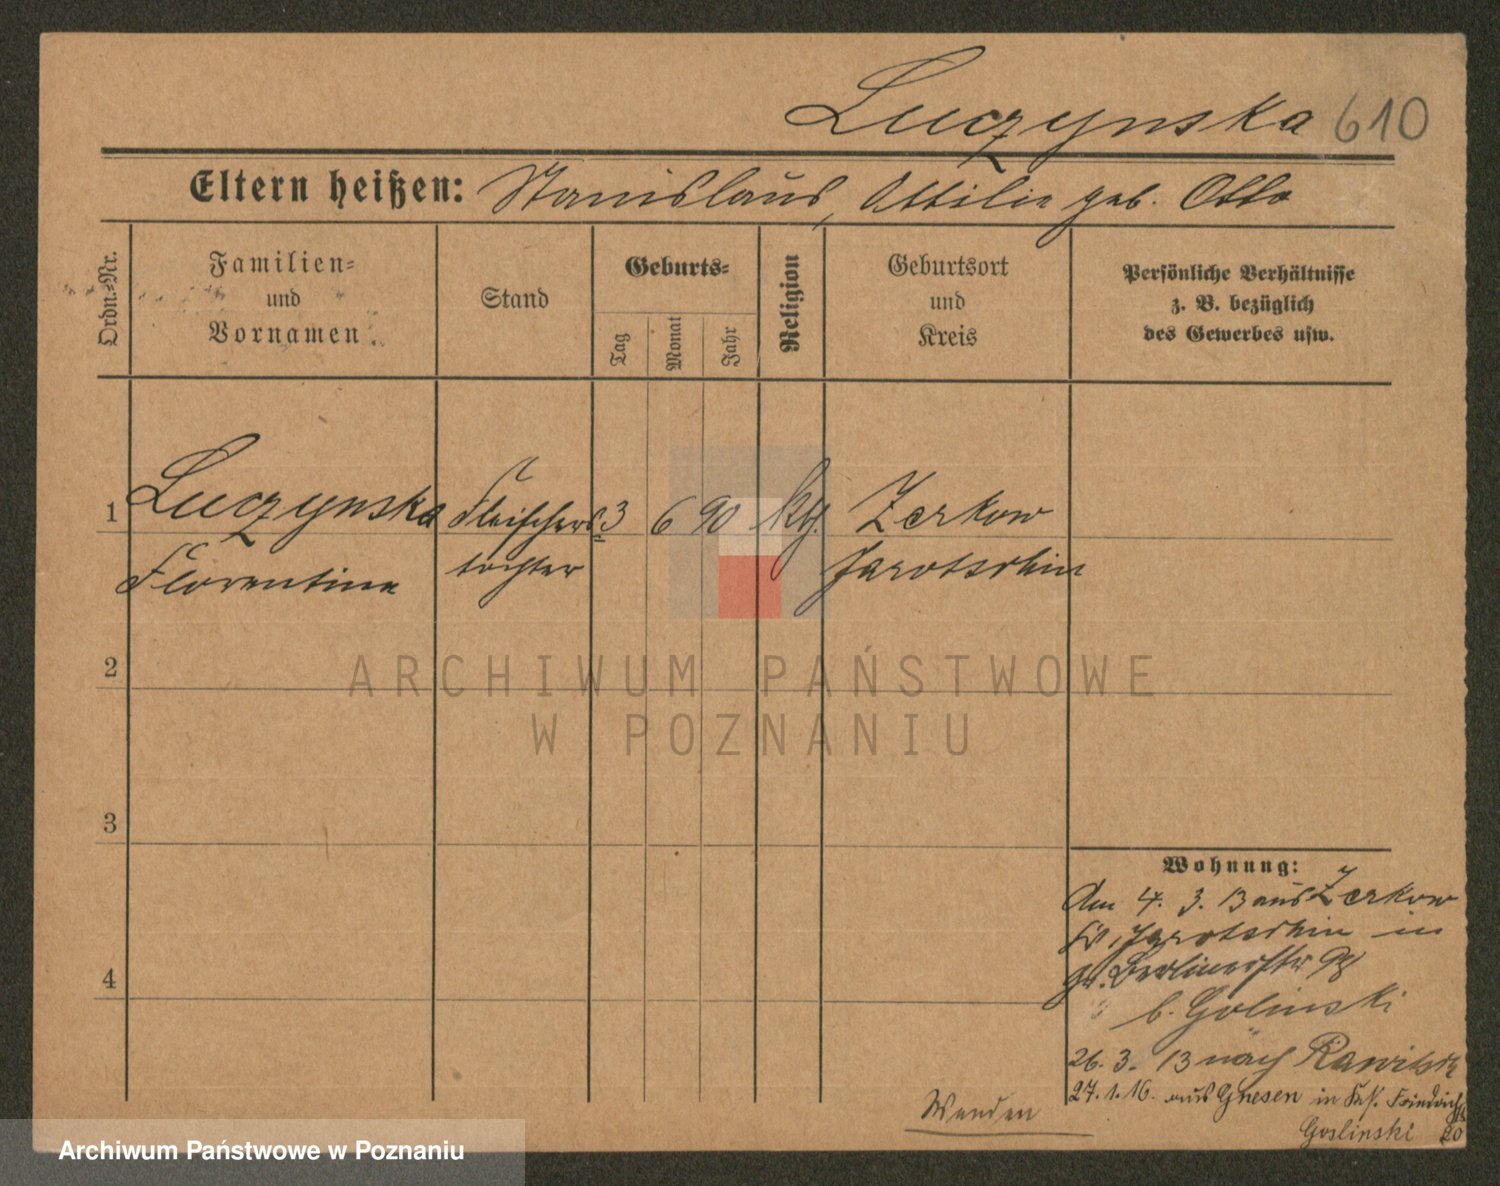 Luczynska 610
Eltern heißen: Stanislaus, Ottilie geb. Otto
Ordn.-Nr.
Familien-
und
Vornamen
Stand
Geburts-
Tag
Monat
Jahr
Religion
Geburtsort
und
Kreis
Persönliche Verhältnisse
z. B. bezüglich
des Gewerbes usw.
1 Luczynska Fleischers 3 6 90 Zerkow
Florentine tochter Jarotschin
2
3
4
Wohnung:
Am 4. 3. 13 aus Zerkow
Jarotschin in
Berlinerstr 98
b. Golinski
26. 3. 13 nach Rawitsch
27. 1. 16. aus Gnesen in Friedrich
Goslinski 20
Wenden
ARCHIWUM PAŃSTWOWE
W POZNANIU
Archiwum Państwowe w Poznaniu